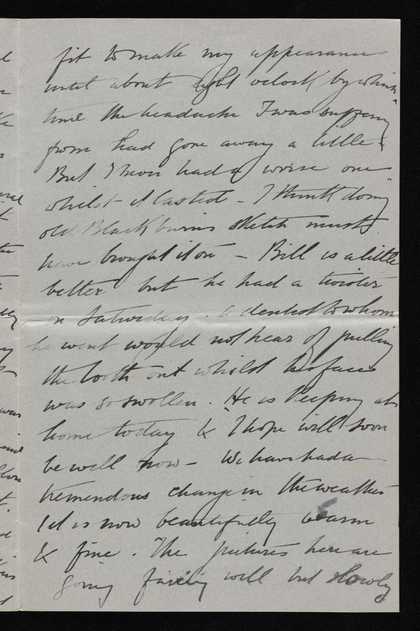 fit to make my appearance
until about eight oclock by which
time the headache I was suffering
from had gone away a little.
But I never had a worse one
whilst it lasted - I think doing
old Blackburns sketch must
have brought it on - Bill is a little
better but he had a twister
on Saturday. a dentist to whom
he went would not hear of pulling
the tooth out whilst his face
was so swollen. He is keeping at
home today & I hope will soon
be well now - We have had a
tremendous change in the weather
It is now beautifully warm
& fine. The pictures here are
going fairly well but slowly